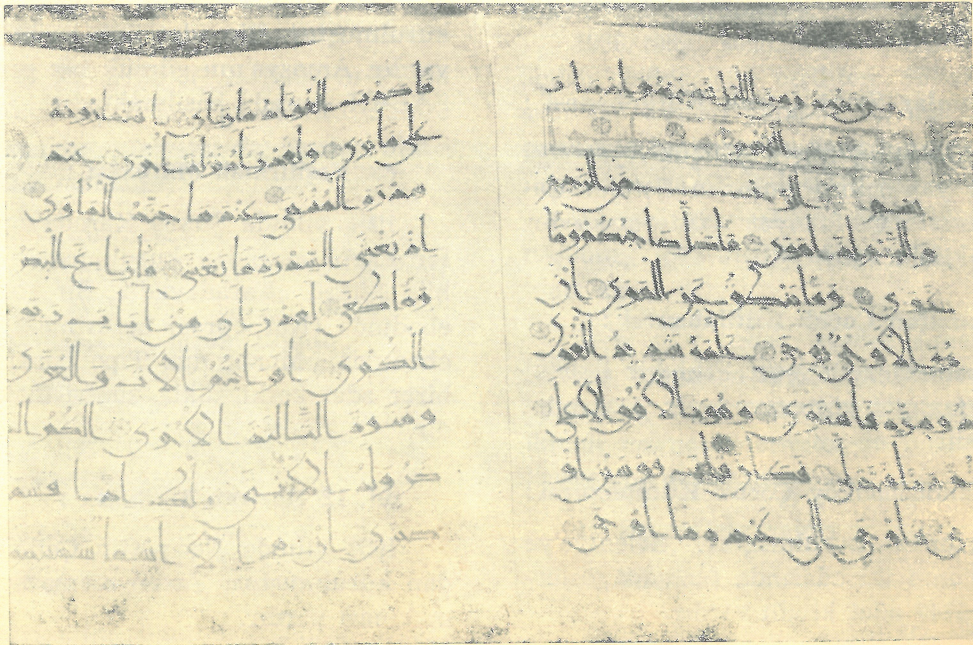 حين تقوم ومن الليل فسبحه وادبار
النجم
بسم الله الرحمن الرحيم
والنجم اذا هوى ما ضل صاحبكم وما
غوى وما ينطق عن الهوى ان
هو الا وحي يوحى علمه شديد القوى
ذو مرة فاستوى وهو بالافق الاعلى
ثم دنا فتدلى فكان قاب قوسين او
ادنى فاوحى الى عبده ما اوحى
ما كذب الفواد ما راى افتمارونه
على ما يرى ولقد راه نزلة اخرى عند
سدرة المنتهى عندها جنة الماوى
اذ يغشى السدرة ما يغشى ما زاغ البصر
وما طغى لقد راى من ايات ربه
الكبرى افرايتم اللات والعزى
ومنوة الثالثة الاخرى الكم الذ
كر وله الانثى تلك اذا قسمة
ضيزى ان هي الا اسما سميتمو